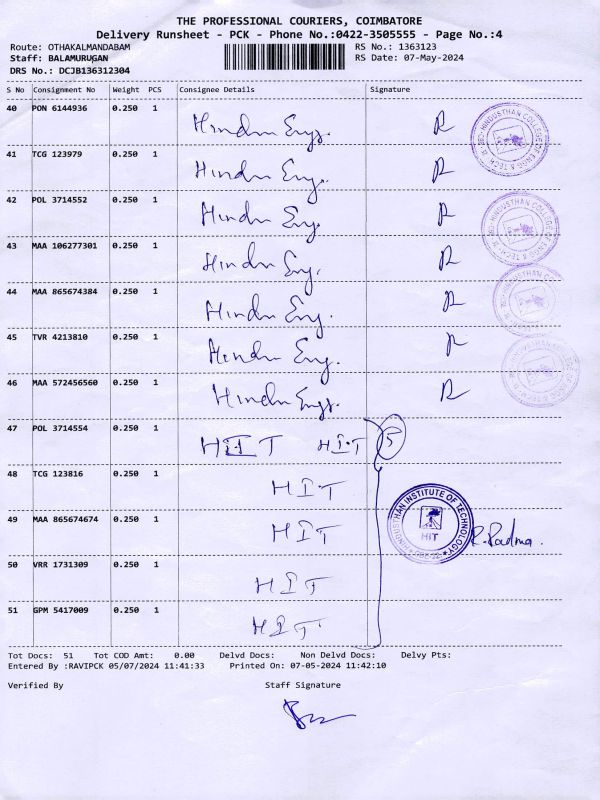 THE PROFESSIONAL COURIERS, COIMBATORE
Delivery Runsheet - PCK - Phone No.:0422-3505555 - Page No.:4
Route: OTHAKALMANDABAM RS No.: 1363123
Staff: BALAMURUGAN RS Date: 07-May-2024
DRS No.: DCJB136312304
S No Consignment No Weight PCS Consignee Details Signature
40 PON 6144936 0.250 1 Hindu Eng.
41 TCG 123979 0.250 1 Hindu Eng.
42 POL 3714552 0.250 1 Hindu Eng.
43 MAA 106277301 0.250 1 Hindu Eng.
44 MAA 865674384 0.250 1 Hindu Eng.
45 TVR 4213810 0.250 1 Hindu Eng.
46 MAA 572456560 0.250 1 Hindu Eng.
47 POL 3714554 0.250 1 HIT HIT 5
48 TCG 123816 0.250 1 HIT
49 MAA 865674674 0.250 1 HIT
50 VRR 1731309 0.250 1 HIT
51 GPM 5417009 0.250 1 HIT
HINDUSTHAN COLLEGE OF ENGG & TECH
HINDUSTHAN COLLEGE OF ENGG & TECH
HINDUSTHAN COLLEGE OF ENGG & TECH
HINDUSTHAN COLLEGE OF ENGG & TECH
HINDUSTHAN INSTITUTE OF TECHNOLOGY
HIT
R. Padma.
Tot Docs: 51 Tot COD Amt: 0.00 Delvd Docs: Non Delvd Docs: Delvy Pts:
Entered By :RAVIPCK 05/07/2024 11:41:33 Printed On: 07-05-2024 11:42:10
Verified By Staff Signature